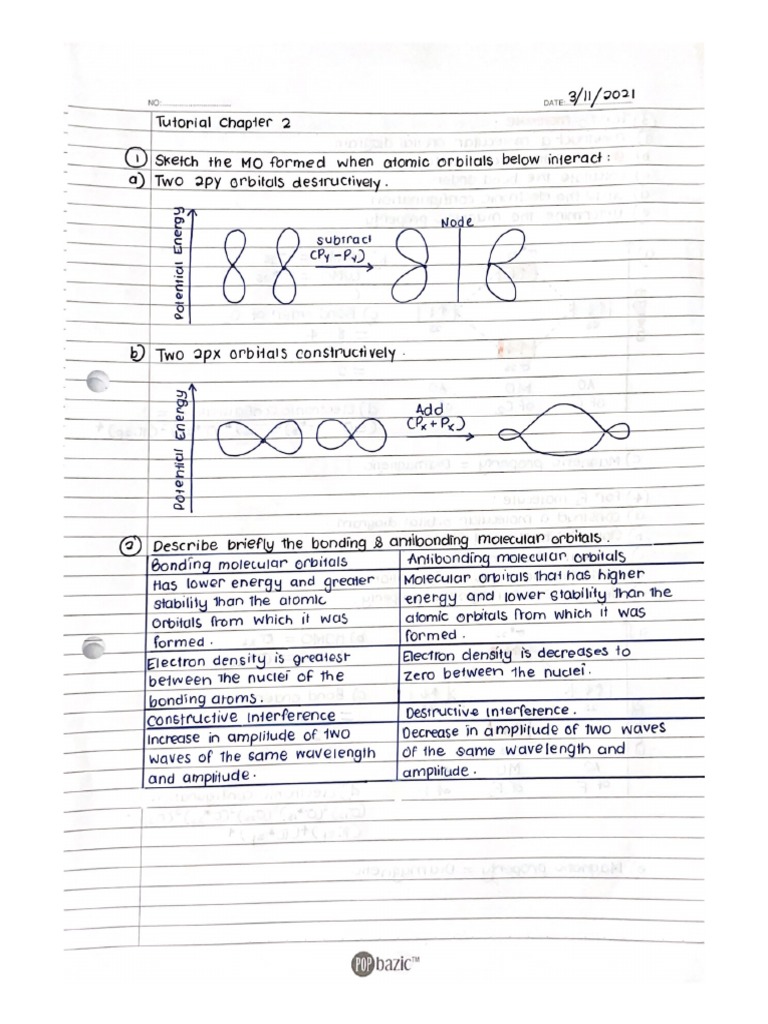 NO:
DATE: 3/11/2021
Tutorial Chapter 2
① Sketch the MO formed when atomic orbitals below interact :
a) Two 2py orbitals destructively.
Potential Energy
subtract
(Py - Py)
Node
b) Two 2px orbitals constructively.
Potential Energy
Add
(Px + Px)
② Describe briefly the bonding & antibonding molecular orbitals.
Bonding molecular orbitals
Has lower energy and greater
stability than the atomic
orbitals from which it was
formed.
Antibonding molecular orbitals
Molecular orbitals that has higher
energy and lower stability than the
atomic orbitals from which it was
formed.
Electron density is greatest
between the nuclei of the
bonding atoms.
Electron density is decreases to
zero between the nuclei.
Constructive interference
Destructive interference.
Increase in amplitude of two
waves of the same wavelength
and amplitude.
Decrease in amplitude of two waves
of the same wavelength and
amplitude.
POP bazic™